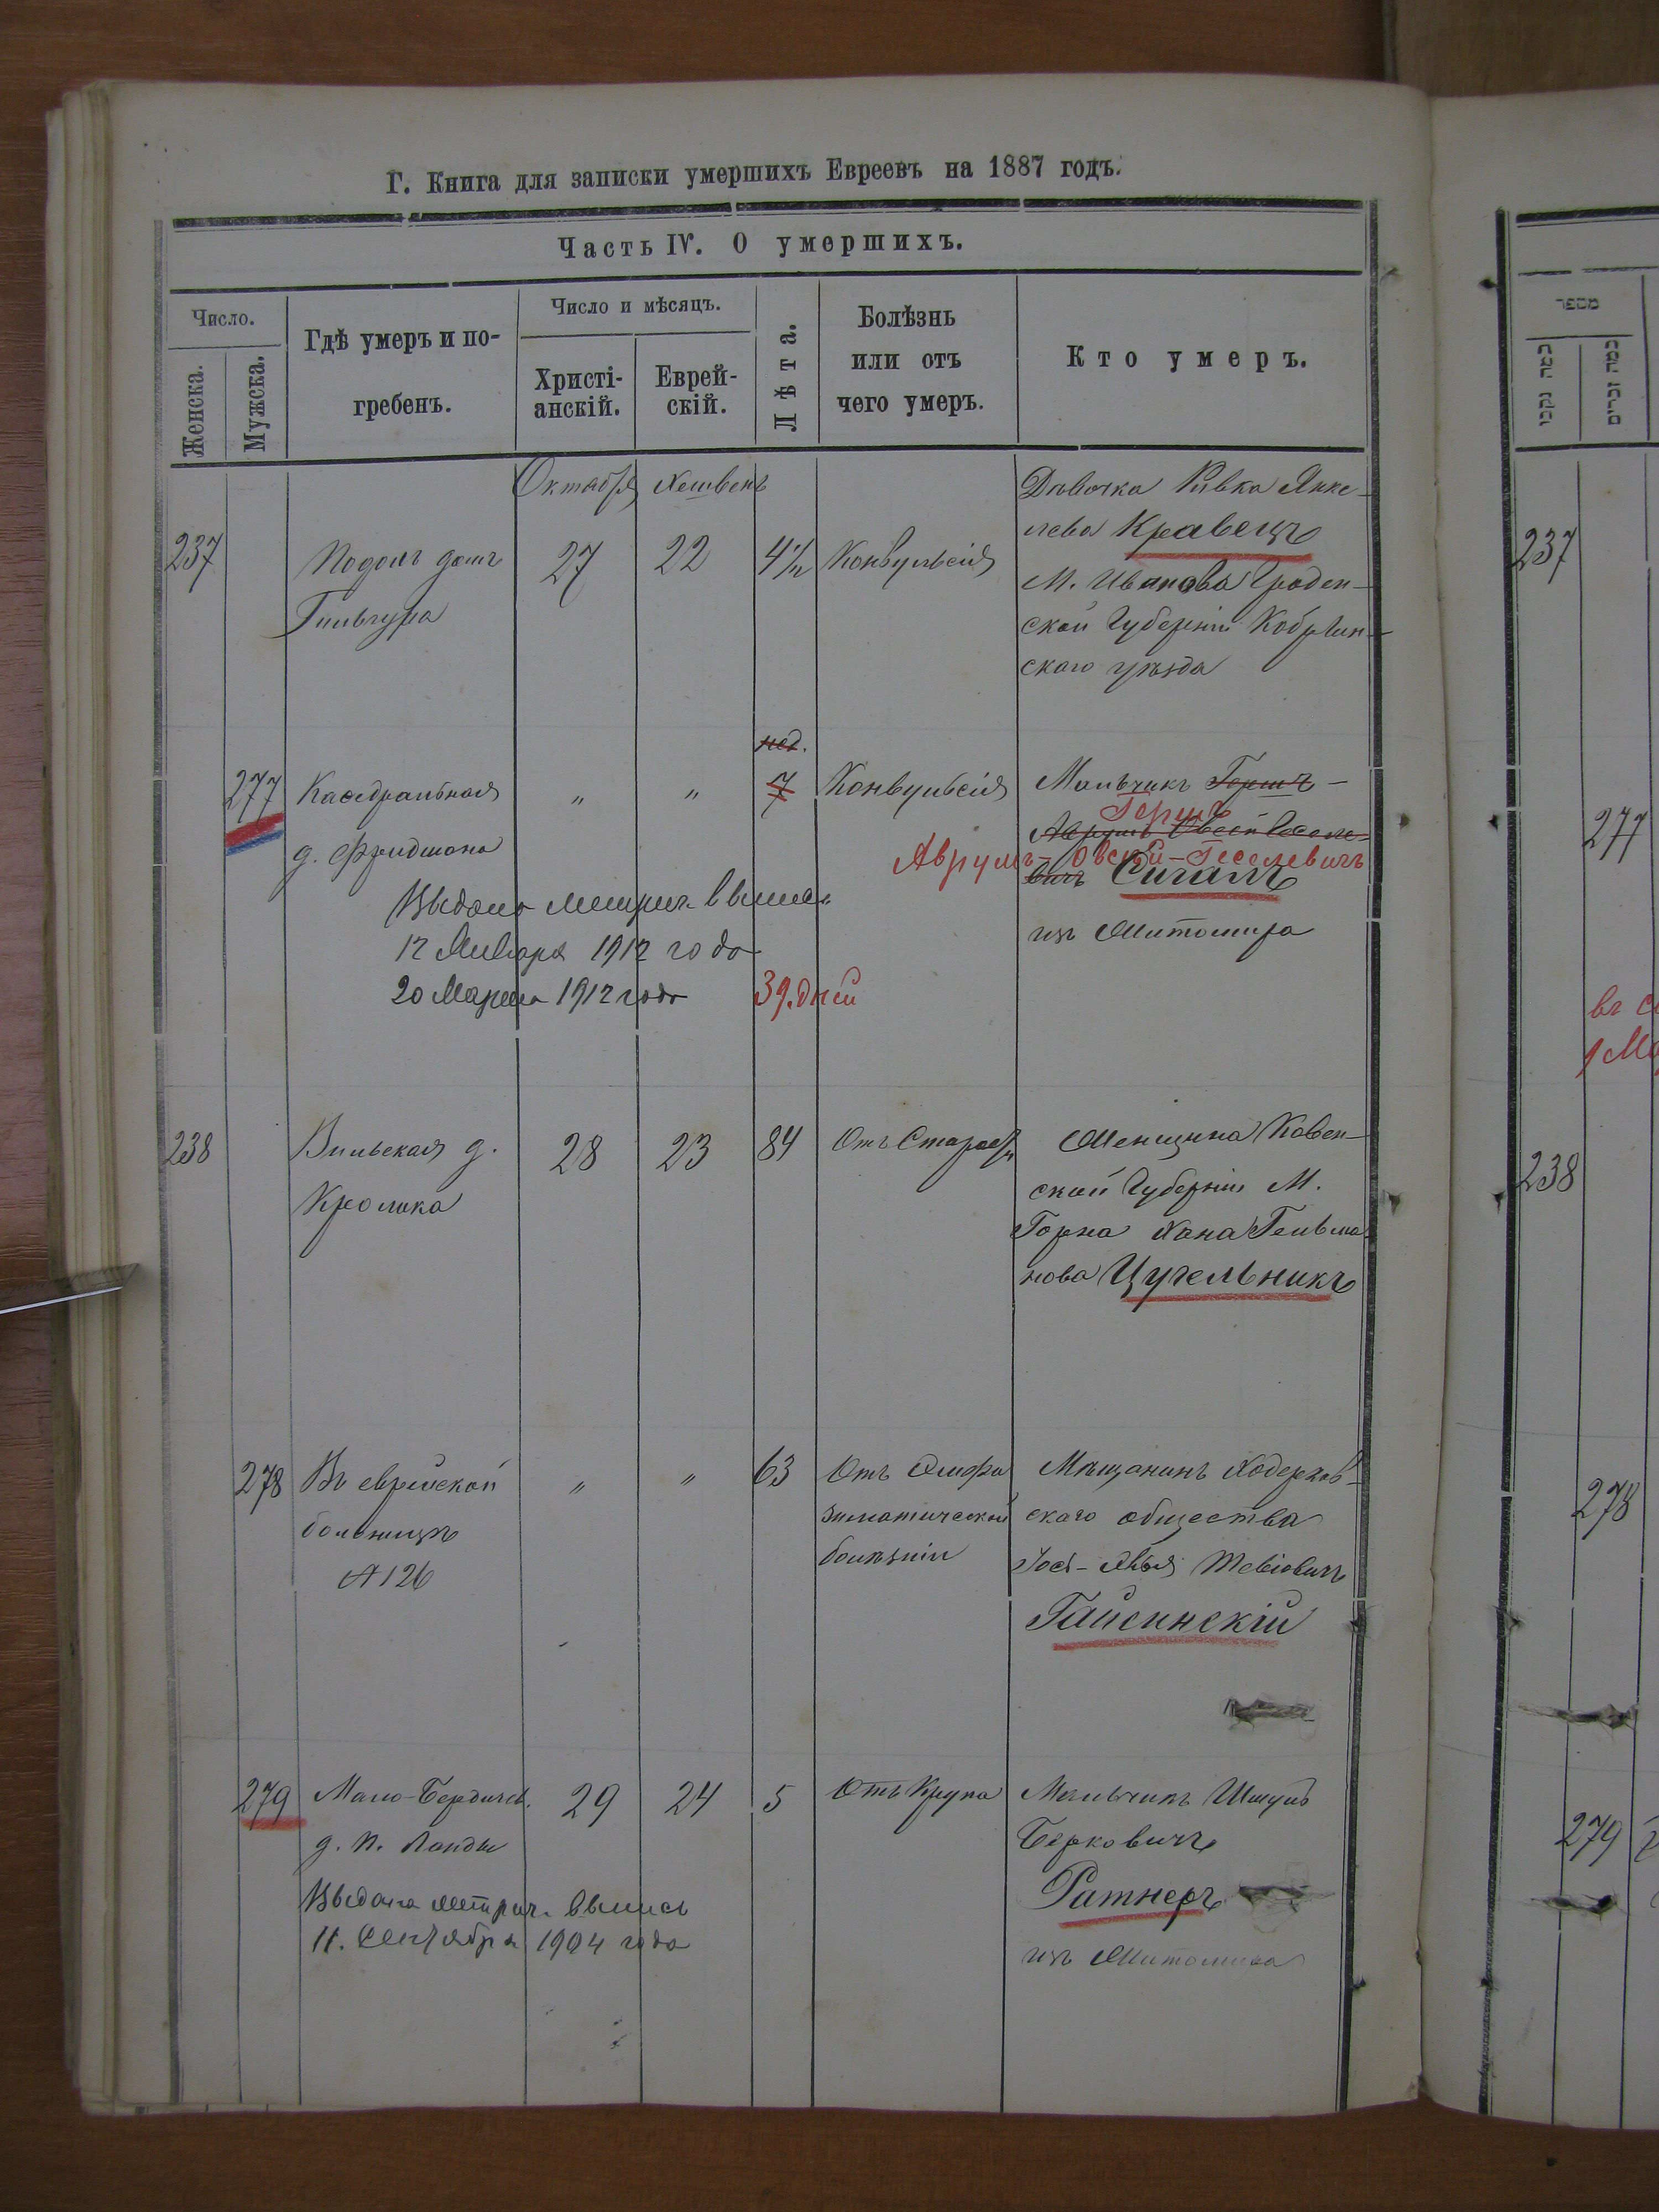 Г. Книга для записки умершихъ Евреевъ на 1887 годъ.
Часть IV. О умершихъ.
Число.
Женска.
Мужска.
Гдѣ умеръ и по-
гребенъ.
Число и мѣсяцъ.
Христі-
анскій.
Еврей-
скій.
Лѣта.
Болѣзнь
или отъ
чего умеръ.
Кто умеръ.
Октября Хешвенъ
237
Подолъ домъ
27
22
4½
Конвульсія
Дѣвочка Ривка Янке-
лева Кравецъ
М. Иванова Гроден-
ской Губерніи Кобрин-
скаго уѣзда
нед.
277
Каѳедральная
д. Фридмана
"
"
7
Конвульсія
Мальчикъ Гершъ -
Гершъ
Аврумъ Овсей Геселе-
Аврумъ-Овсѣй-Геселевичъ
вичъ Сигалъ
изъ Житомира
Выдана метрич. выпись
12 Января 1912 года
20 Марта 1912 года
39. дней
238
Вильская д.
Кролика
28
23
84
Отъ Старости
Женщина Ковен-
ской Губерніи М.
Хана Гельма-
нова Цугельникъ
278
Въ еврейской
больницѣ
126
"
"
63
Отъ
болѣзни
Мѣщанинъ Ходорков-
скаго общества
Тевіовичъ
Гайсинскій
279
Мало-Бердичев.
д. П. Ланды
29
24
5
Отъ Крупа
Мальчикъ Шмуль
Берковичъ
Ратнеръ
изъ Житомира
Выдана метрич. выпись
11. Сентября 1904 года
מספר
כמה נקבו
כמה זכרים
237
277
238
278
279